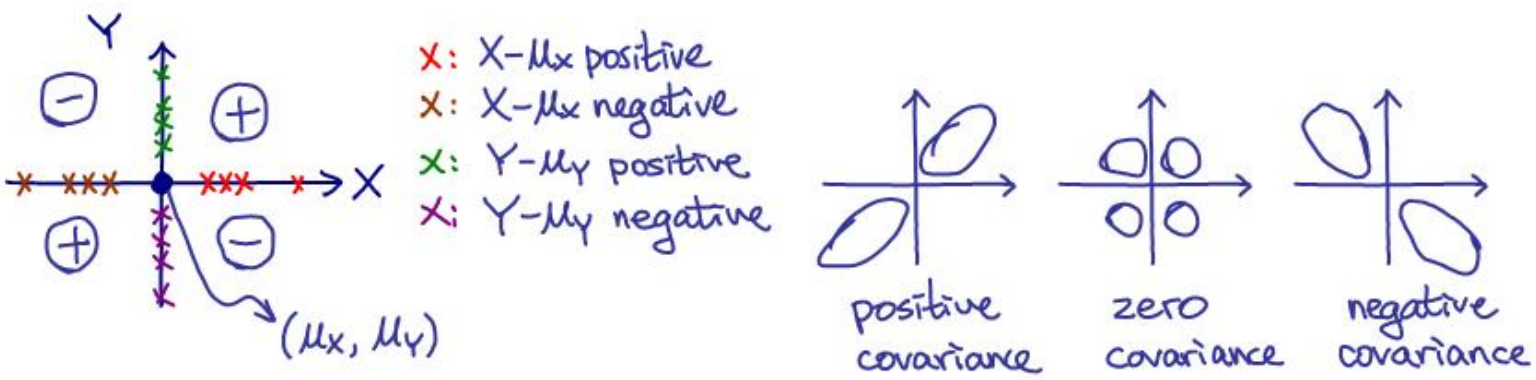 Y
⊖
⊕
X
⊕
⊖
(μx, μY)
x: X-μx positive
x: X-μx negative
x: Y-μY positive
x: Y-μY negative
positive
covariance
zero
covariance
negative
covariance